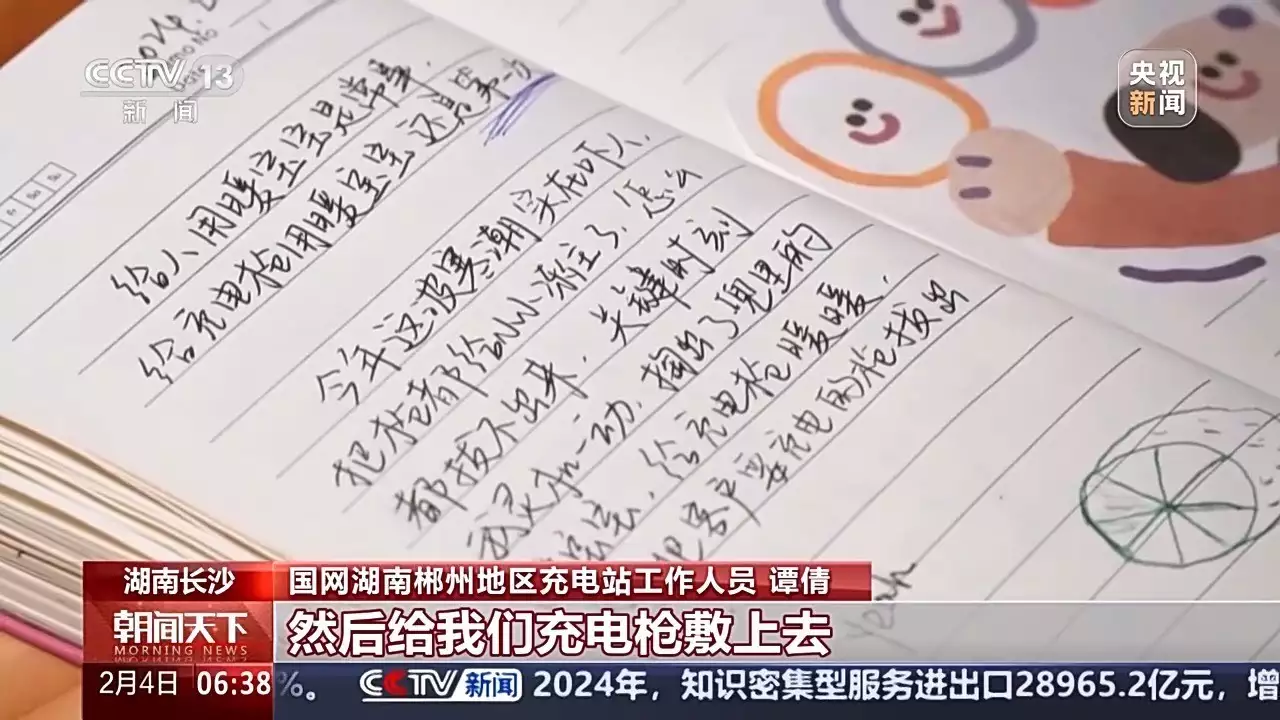 CCTV 13
新闻
央视
新闻
给人用暖宝宝是常事.
给充电枪用暖宝宝还是第一次
今年这波寒潮实在吓人,
把枪都给冻住了,怎么
都拔不出来,关键时刻
我灵机一动,掏出了兜里的
宝宝,给充电枪暖暖,
把客户要充电的枪拔出
Yeah
湖南长沙
国网湖南郴州地区充电站工作人员 谭倩
朝闻天下
MORNING NEWS
然后给我们充电枪敷上去
2月4日 06:38
%。 CCTV新闻 2024年，知识密集型服务进出口28965.2亿元，增